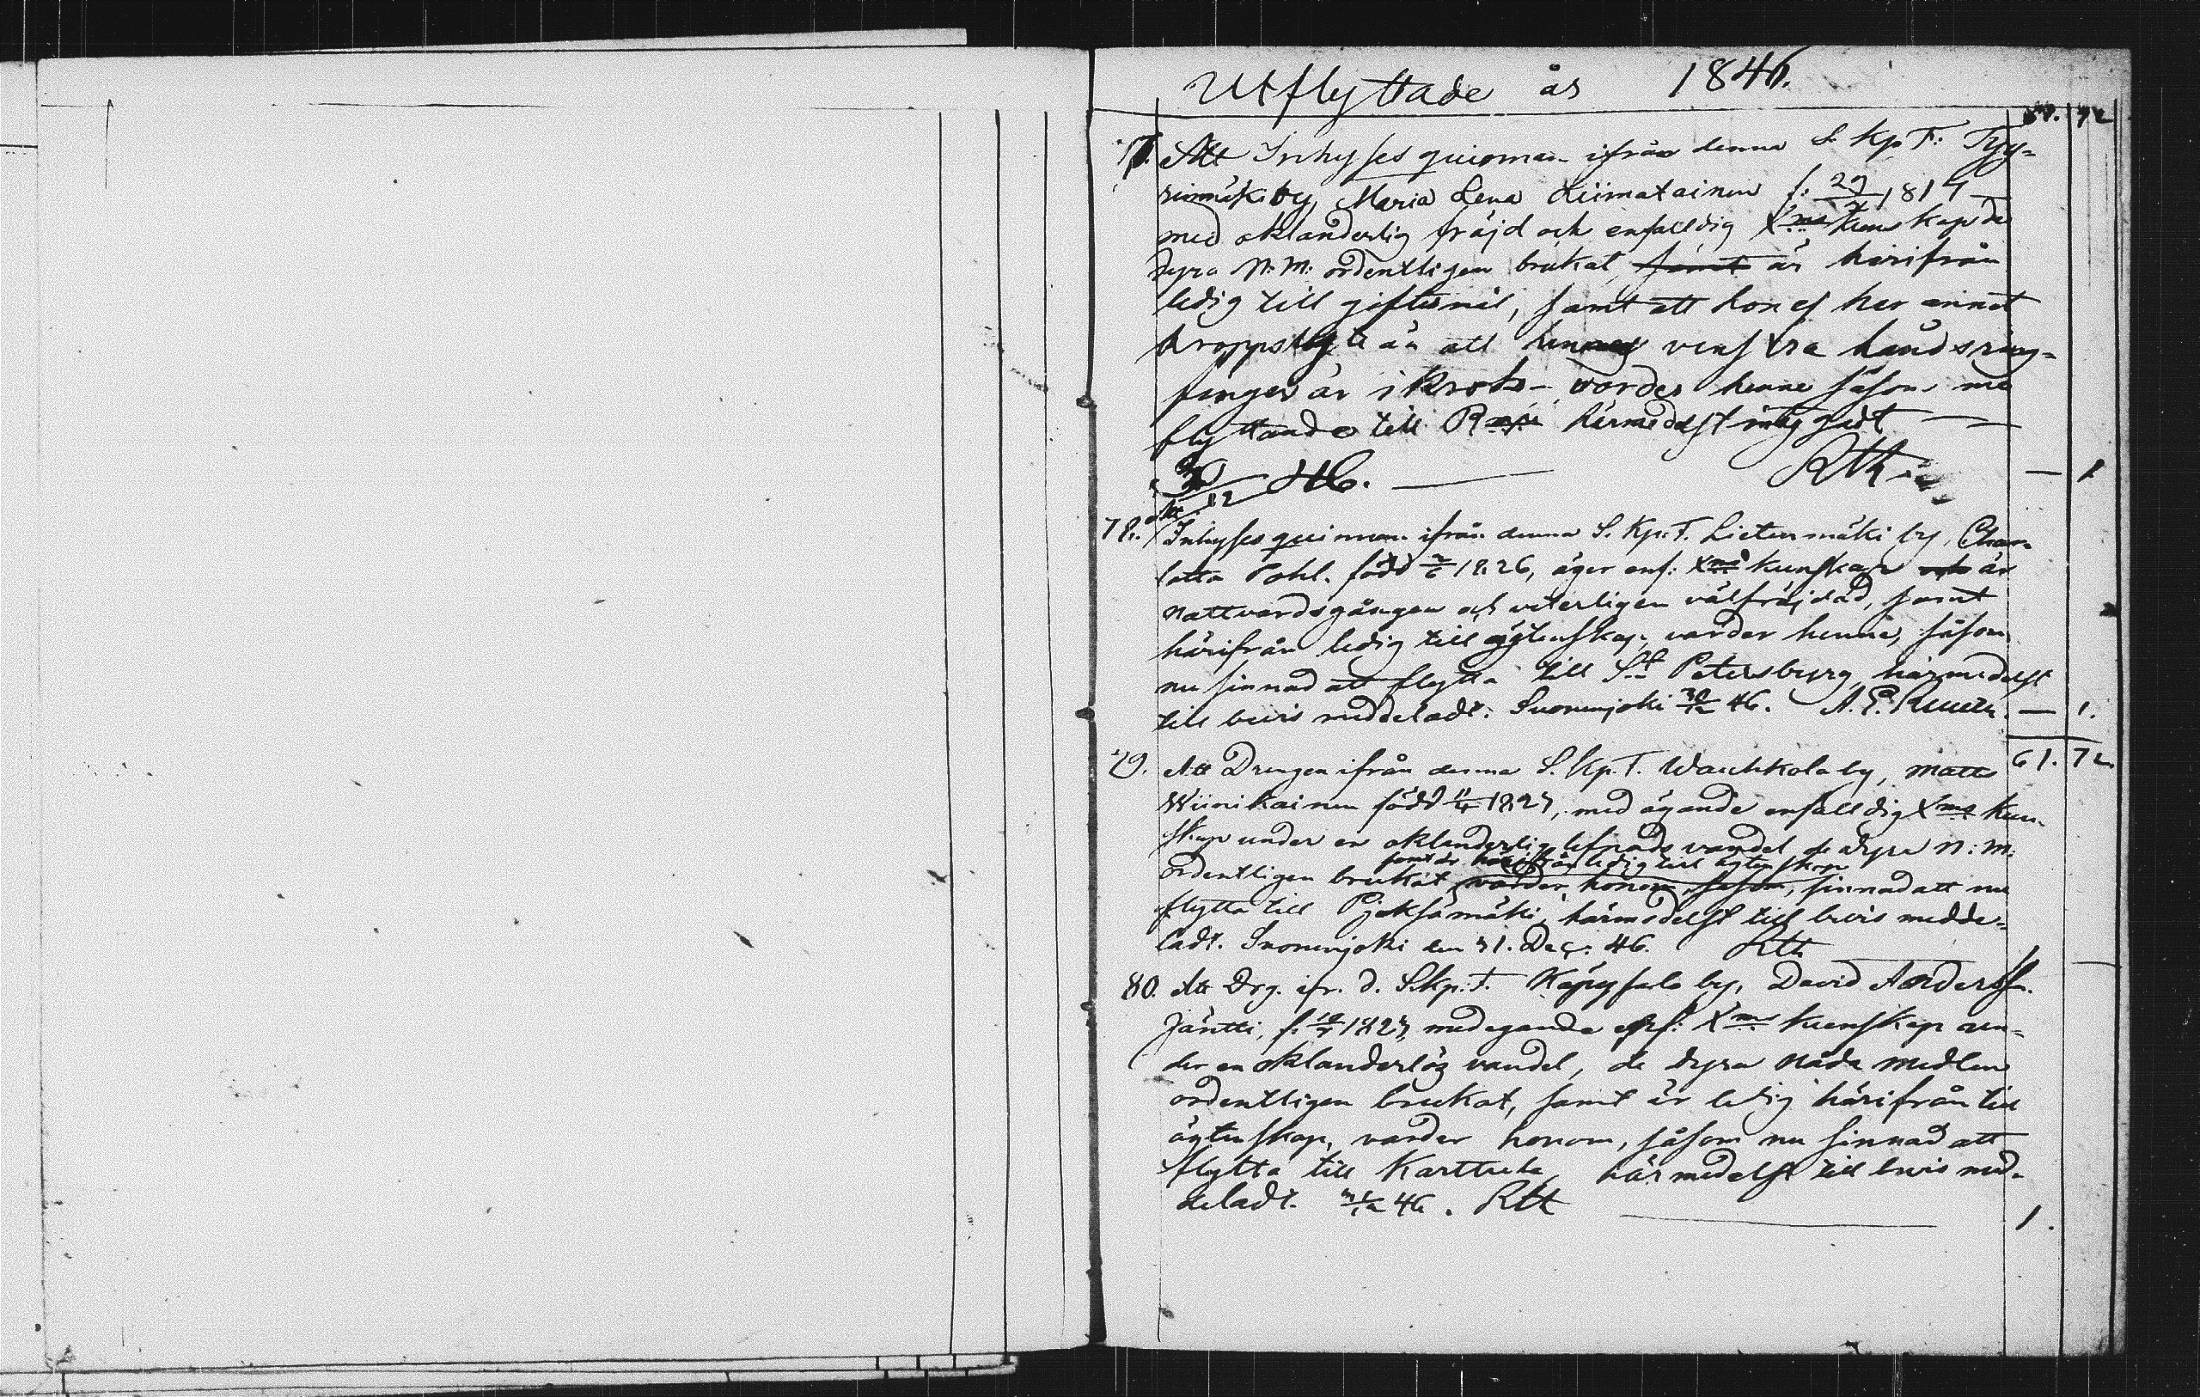 Utflyttade år 1846.
77. Att Inhyses quinnan ifrån denna S. Kp. F: Tyy-
rinmäki by, Maria Lena Liimatainen f: 1817 —
med oklanderlig fräjd och enfalldig Xna kunskap de
dyra N: M: ordentligen brukat, samt är härifrån
ledig till giftermål, samt att hon ej har annat
kroppslyte än att vensstra handsring-
finger är i krok — varder henne såsom nu
flyttande till härmedelst
30/12 46. — Rth — 1
78. Att Inhyses quinnan ifrån denna S. Kp. F. Lietenmäki by, Char-
lotta Pohl. född 1826, äger enf: Xna kunskap och är
nattvardsgången och veterligen välfräjdad, samt
härifrån ledig till ägtenskap, varder henne, såsom
nu sinnad att flytta till St Petersburg härmedelst
till bevis meddeladt. Suonenjoki 30/12 46. — 1.
61. 72.
79. Att Drengen ifrån denna S. Kp. F. Wauhkola by, Matts
Wiinikainen född 1827, med ägande enfalldig Xna kun-
skap under en oklanderlig lefnads vandel de dyra N: M:
samt är härifrån ledig till ägtenskap
ordentligen brukat, varder honom såsom, sinnad att nu
flytta till Pjeksämäki, härmedelst till bevis medde-
ladt. Suonenjoki den 31. Dec: 46. Rth
80. Att Drg. ifr. d. S.kp. F. Käpysalo by, David Anderss.
Jäntti, f. 1827, med egande enf: Xna kunskap un-
der en oklanderlig vandel, de dyra nåde medlen
ordentligen brukat, samt är ledig härifrån till
ägtenskap, varder honom, såsom nu sinnad att
flytta till Karttula, härmedelst till bevis med-
deladt. 31/12 46. Rth — 1.